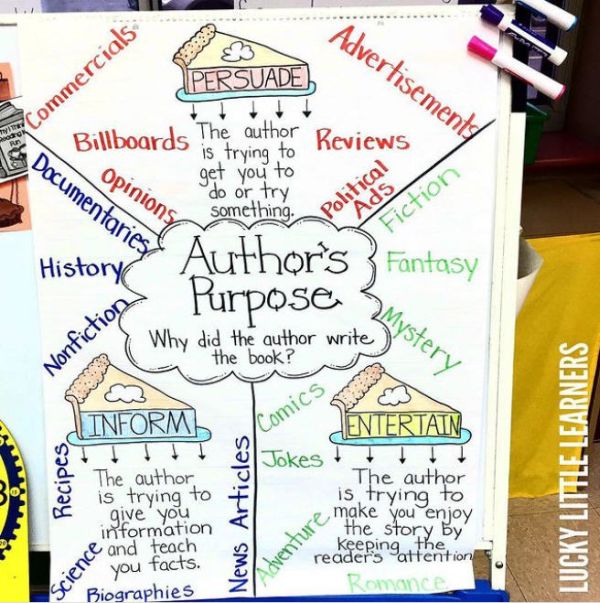 Commercials
Advertisements
PERSUADE
Billboards
Reviews
The author
is trying to
get you to
do or try
something.
Opinions
Political
Ads
Documentaries
Fiction
History
Fantasy
Nonfiction
Mystery
Author's
Purpose
Why did the author write
the book?
INFORM
Recipes
The author
is trying to
give you
information
and teach
you facts.
Science
Biographies
News Articles
Comics
ENTERTAIN
Jokes
The author
is trying to
make you enjoy
the story by
keeping the
reader's attention
Adventure
Romance
LUCKY LITTLE LEARNERS